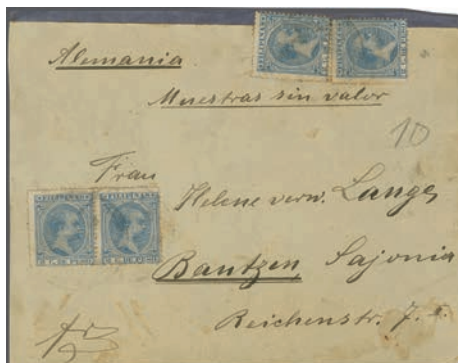 Alemania
Muestras sin valor
10
Frau
Helene verw. Lange,
Bautzen, Sajonia
Reichenstr. 7. I.